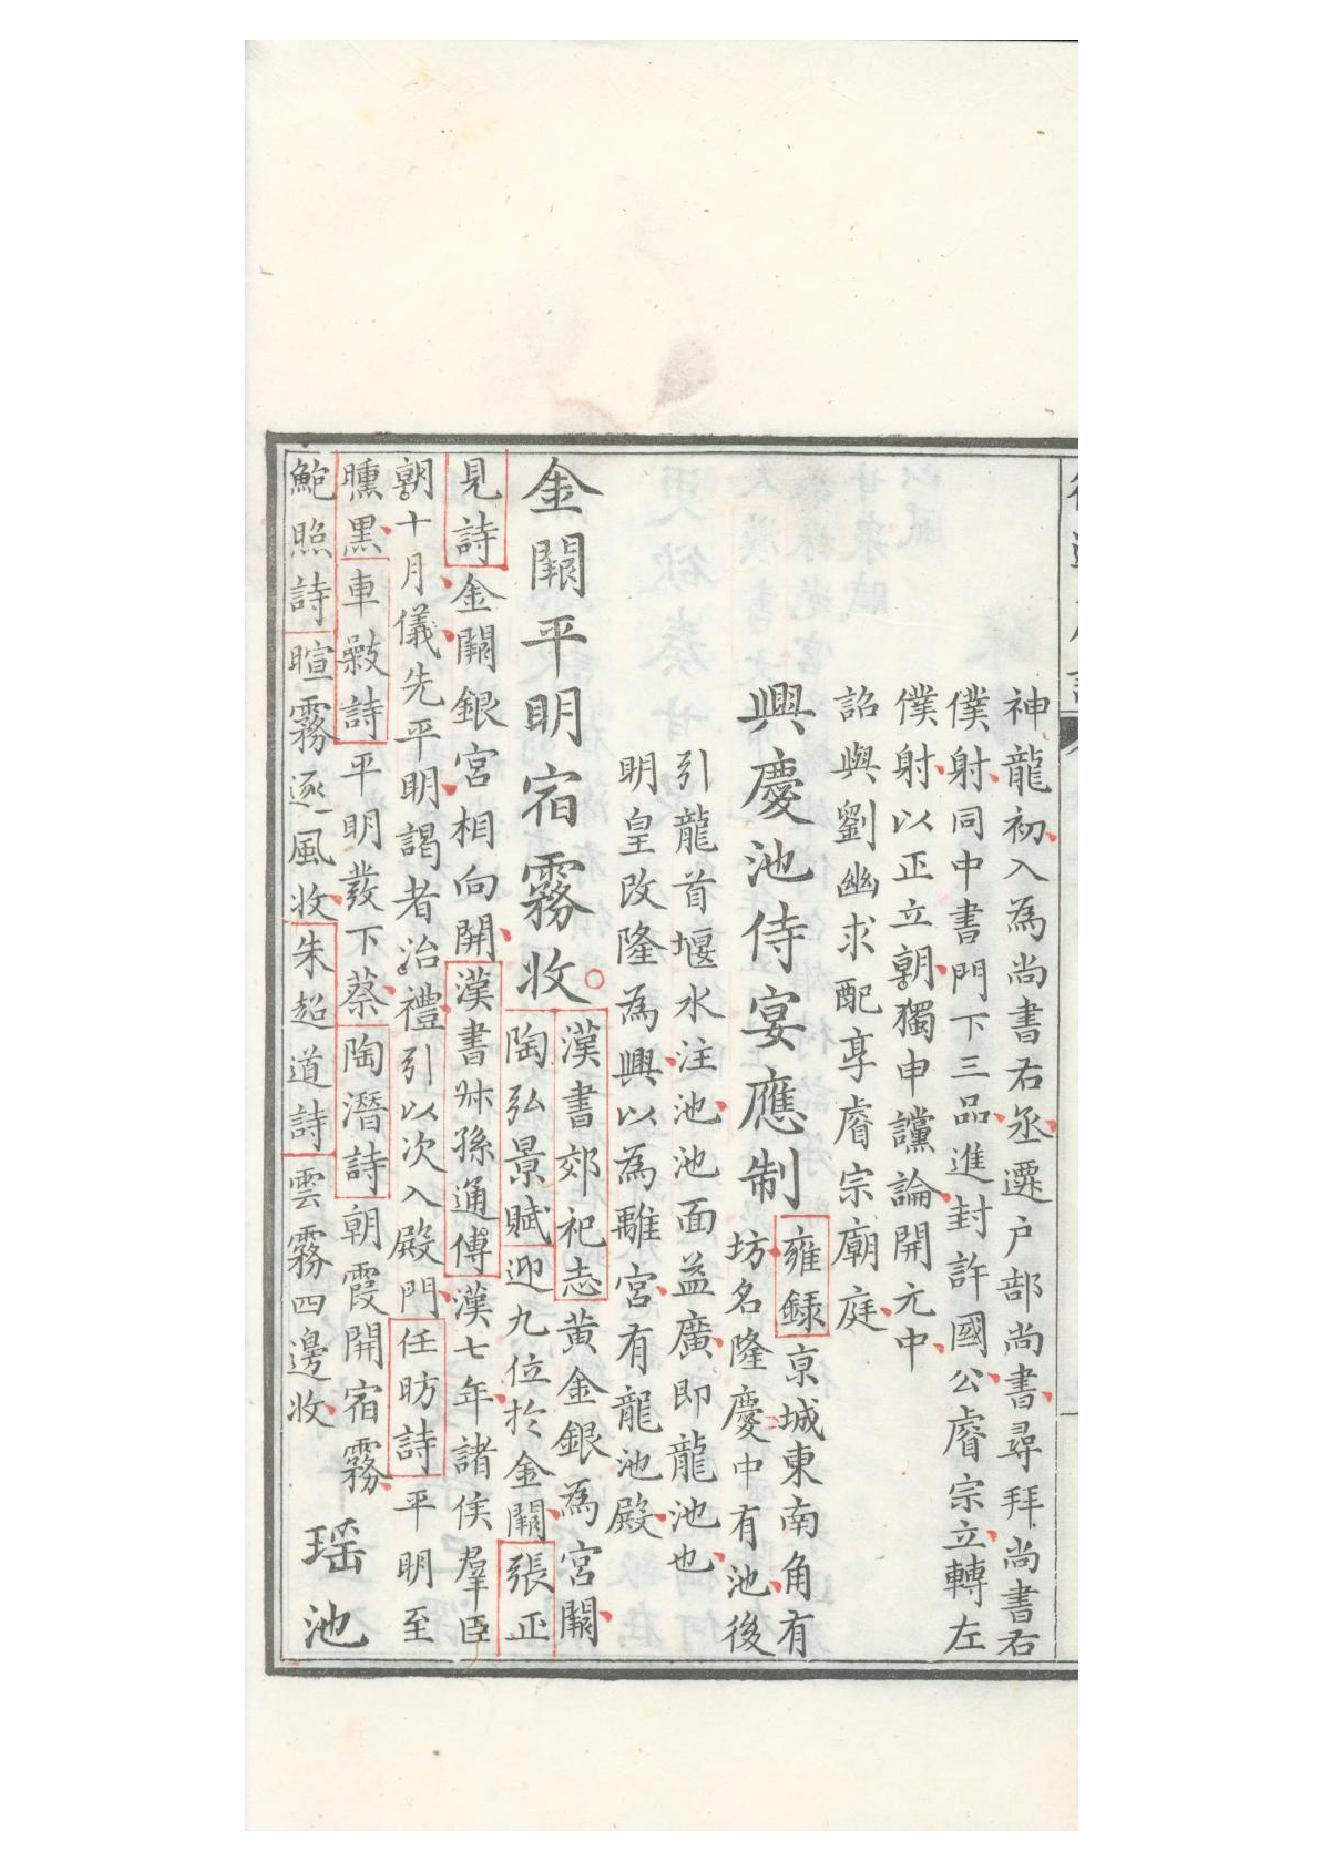 神龍初入為尚書右丞遷户部尚書尋拜尚書右
僕射同中書門下三品進封許國公睿宗立轉左
僕射以正立朝獨申讜論開元中
詔與劉幽求配享睿宗廟庭
興慶池侍宴應制
雍録京城東南角有
坊名隆慶中有池後
引龍首堰水注池池面益廣即龍池也
明皇改隆為興以為離宮有龍池殿
金闕平明宿霧收
漢書郊祀志黄金銀為宮闕
陶弘景賦迎九位於金闕張正
見詩金闕銀宮相向開漢書叔孫通傅漢七年諸侯羣臣
朝十月儀先平明謁者治禮引以次入殿門任昉詩平明至
曛黒車敽詩平明發下蔡陶潛詩朝霞開宿霧
鮑照詩暄霧逐風收朱超道詩雲霧四邊收
瑶池